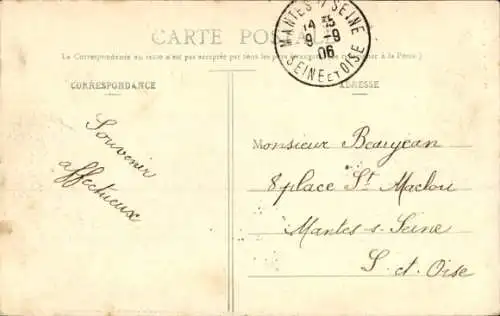 CARTE POSTALE
La Correspondance au recto n'est pas acceptée par tous les pays étrangers (Se renseigner à la Poste)
CORRESPONDANCE
ADRESSE
MANTES S/ SEINE
14 45
9 -9
06
SEINE ET OISE
Souvenir
affectueux
Monsieur Beaujean
8 place St Maclou
Mantes-s-Seine
S. et. Oise